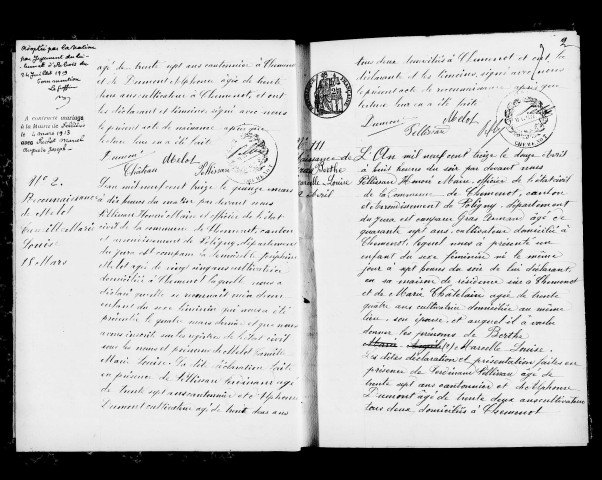 Adoptée par la Nation
par Jugement du tri-
24 Juillet 1919
A contracté mariage
à la Mairie de
le 4 mars 1913
avec
Auguste Joseph
N° 2.
Reconnaissance
de Melot
Camille Marie
Louise
15 Mars
agé de trente sept ans cantonnier à Thomenot
et de Dumont Alphonse âgé de trente
deux ans cultivateur domicilié à Thomenot et ont,
les déclarant et témoins, signé avec nous
le présent acte de naissance après que
lecture leur en a été faite.
Dumont Melot
Château Pellissard
L'an mil neuf cent treize le quinze mars
à dix heures du matin par devant nous
Pellissard Henri Maire et officier de l'état
civil de la commune de Thomenot, canton
et arrondissement de Poligny, département
du Jura est comparu la Demoiselle Joséphine
Melot agé de vingt cinq ans cultivatrice
domiciliée à Thomenot laquelle nous a
déclaré qu'elle se reconnait mère d'un
enfant du sexe féminin qui nous a été
présenté le quatre mars dernier et que nous
avons inscrit sur les registres de l'état civil
sous les noms et prénoms de Melot Camille
Marie Louise. La dite déclaration faite
en présence de Pellissard Ferdinand agé
de trente sept ans cantonnier et de Alphonse
Dumont cultivateur agé de trente deux ans
2
tous deux domiciliés à Thomenot et ont, les
déclarants et les témoins, signé avec nous
le présent acte de reconnaissance après que
lecture leur en a été faite.
Dumont Melot
Pellissard
N° III
Naissance de
Gras Berthe
Marcelle Louise
12 Avril
L'An mil neuf cent treize le douze Avril
à huit heures du soir par devant nous
Pellissard Henri Maire, officier de l'état civil
de la commune de Thomenot, canton
et arrondissement de Poligny, département
du Jura, est comparu Gras Armand âgé de
quarante sept ans, cultivateur domicilié à
Thomenot, lequel nous a présenté un
enfant du sexe féminin né le même
jour à sept heures du soir de lui déclarant,
en sa maison de résidence sise à Thomenot
et de Marie Châtelain agée de trente
quatre ans cultivatrice domiciliée au même
lieu, son épouse, et auquel il a voulu
donner les prénoms de Berthe
Marcelle Louise.
Les dites déclaration et présentation faites en
présence de Ferdinand Pellissard âgé de
trente sept ans cantonnier et de Alphonse
Dumont âgé de trente deux ans cultivateur
tous deux domiciliés à Thomenot